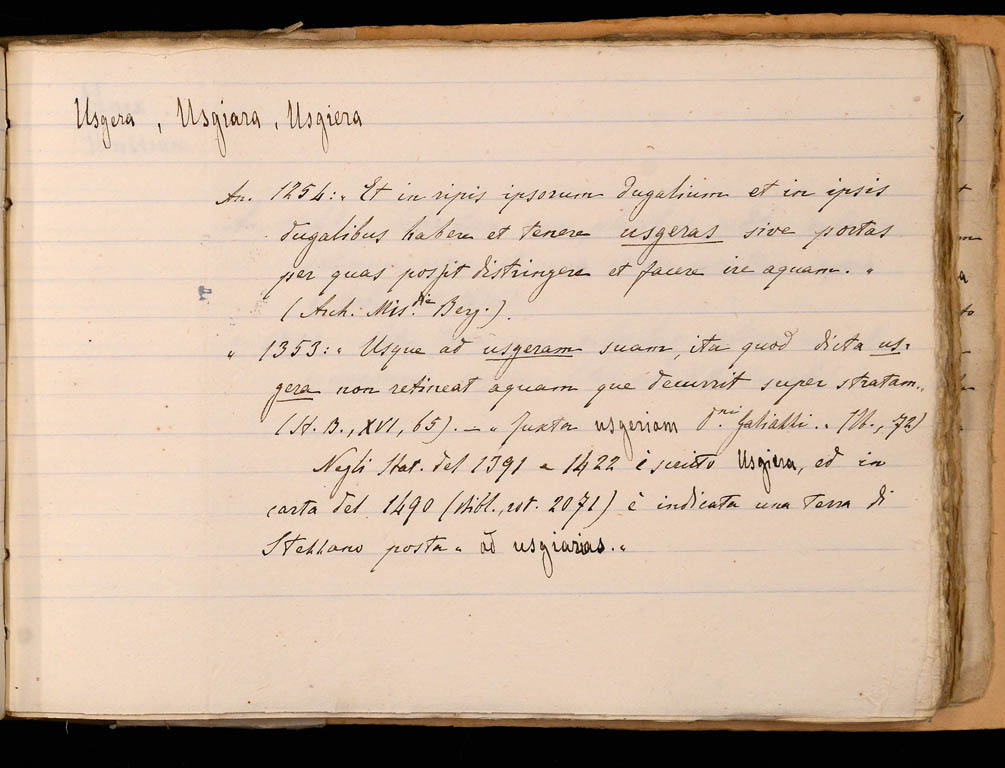 Usgera, Usgiara, Usgiera
An. 1254: „ Et in ripis ipsorum dugalium et in ipsis
dugalibus habere et tenere usgeras sive portas
per quas possit distringere et facere ire aquam. „
(Arch. Mis.die Berg.).
„ 1353: „ Usque ad usgeram suam, ita quod dicta us-
gera non retineat aquam que decurrit super stratam „
(St. B., XVI, 65). — „ Juxta usgeriam d.ni Galiazzi. „ (Ib., 72)
Negli Stat. del 1391 e 1422 è scritto Usgiera, ed in
carta del 1490 (Bibl., rot. 2071) è indicata una terra di
Stezzano posta „ ad usgiarias. „